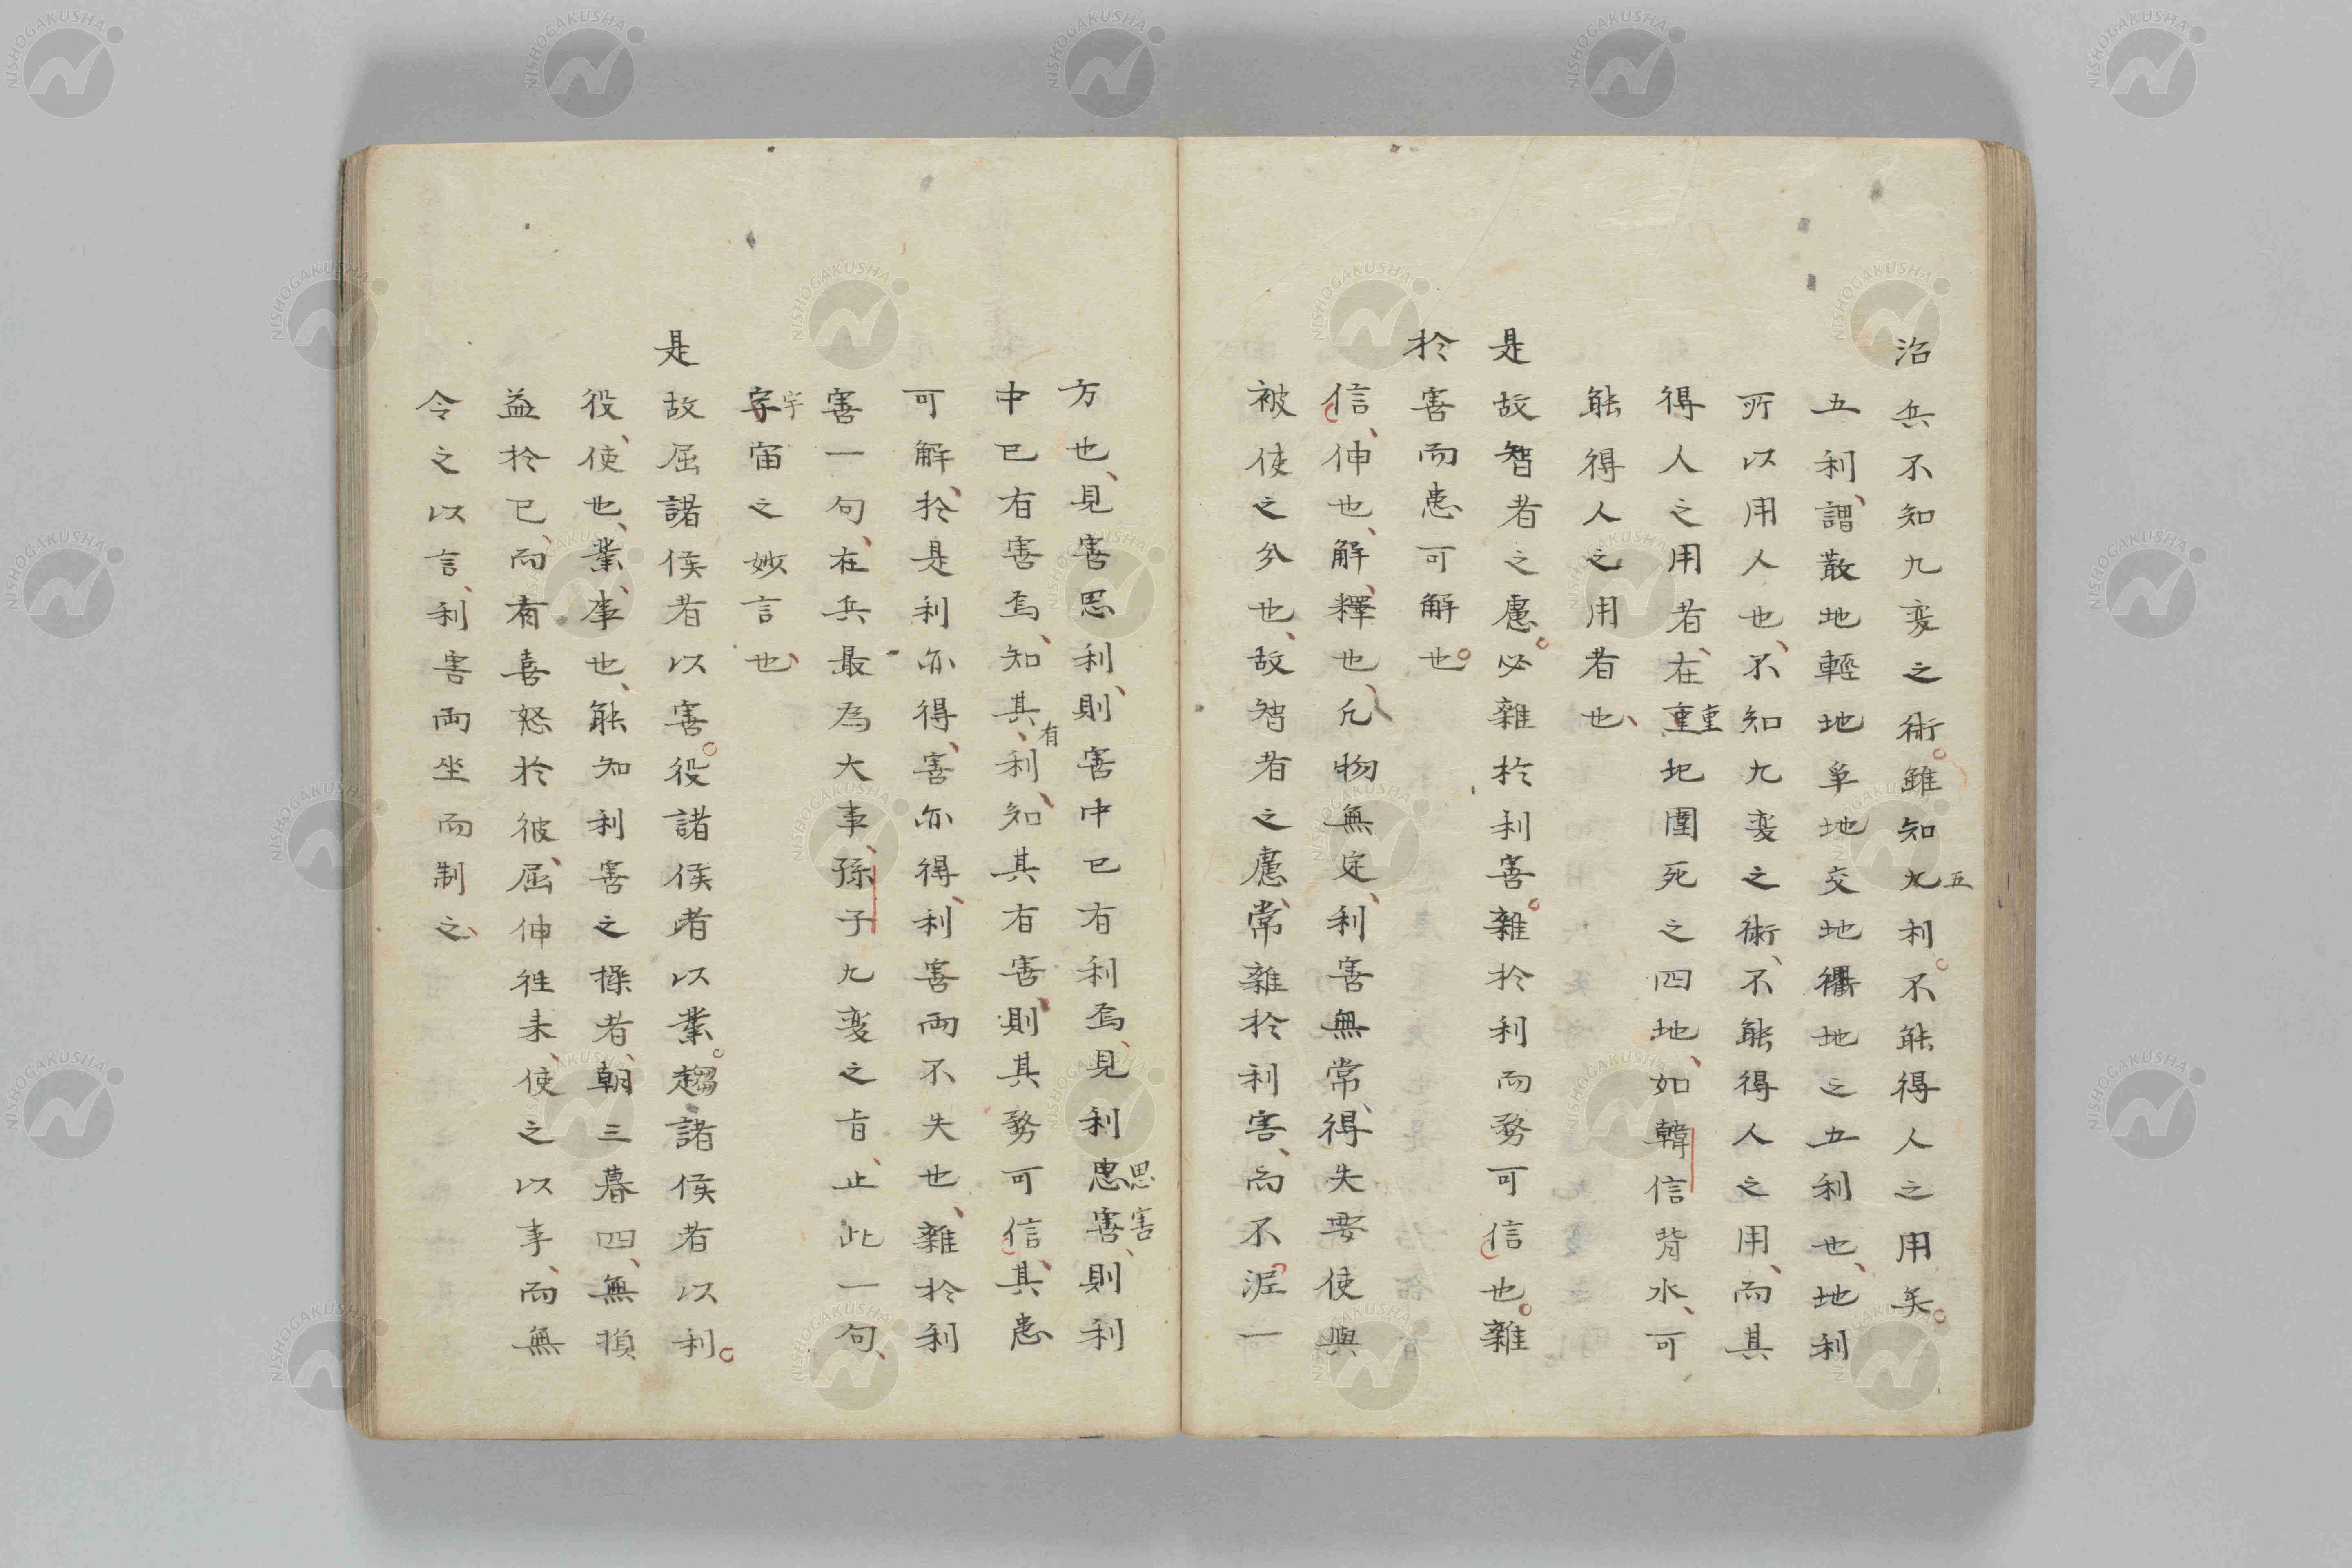 治兵不知九変之術雖知九五利不能得人之用矣
五利謂散地輕地阜地交地衢地之五利也地利
所以用人也不知九変之術不能得人之用而其
得人之用者在重重地圍死之四地如韓信背水可
能得人之用者也
是故智者之慮必雜於利害雜於利而務可信也雜
於害而患可解也
信伸也解釋也凡物無定利害無常得失要使與
被使之分也故智者之慮常雜於利害而不泥一
方也見害思利則害中已有利焉見利思害思害則利
中已有害焉知其有利知其有害則其務可信其患
可解於是利亦得害亦得利害両不失也雜於利
害一句在兵最為大事孫子九変之旨止此一句
字宇宙之妙言也
是故屈諸侯者以害役諸侯者以業趨諸侯者以利
役使也業事也能知利害之操者朝三暮四無損
益於已而有喜怒於彼屈伸往来使之以事而無
令之以言利害両坐而制之
NISHOGAKUSHA